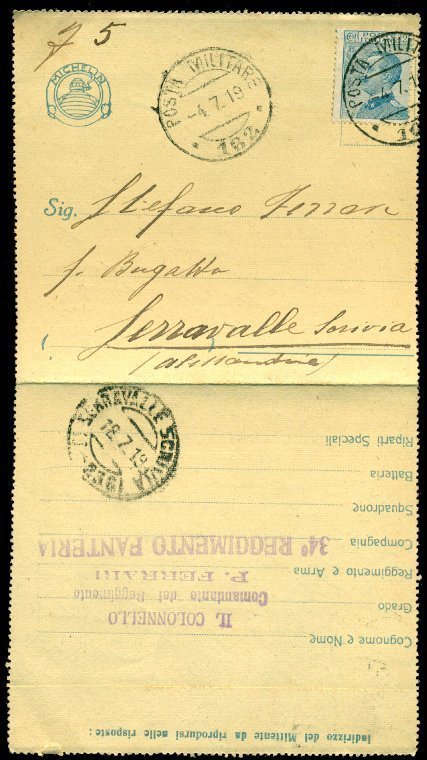 7 5
MICHELIN
POSTA MILITARE
-4.7.19
* 162 *
POSTA MILITARE
-4.7.1
Sig. Stefano Ferrari
f. Bugatto
Serravalle Scrivia
(Alessandria)
SERRAVALLE SCRIVIA
18.7.19
Indirizzo del Mittente da riprodursi nelle risposte:
Cognome e Nome
IL COLONNELLO
Grado
Comandante del Reggimento
Reggimento e Arma
P. FERRARI
Compagnia
34° REGGIMENTO FANTERIA
Squadrone
Batteria
Riparti Speciali